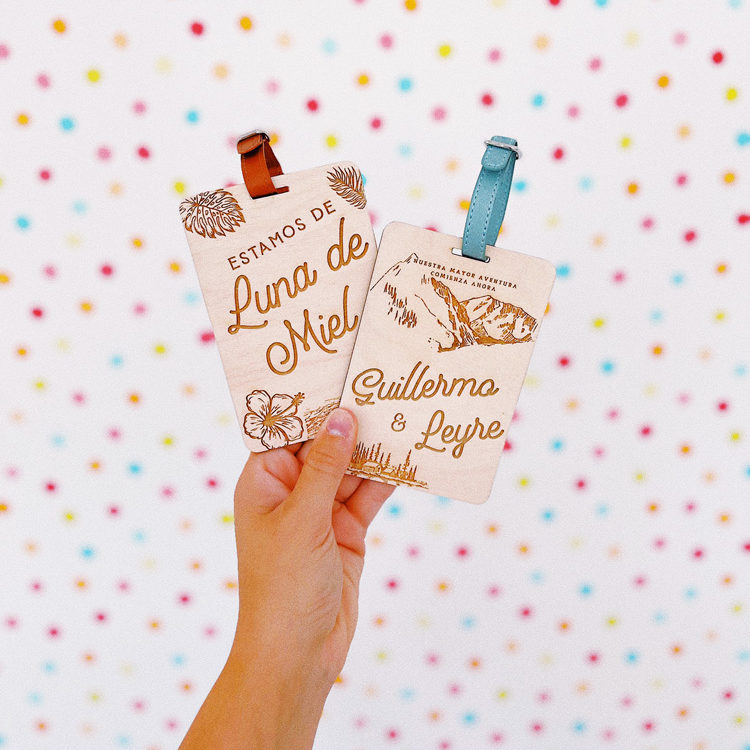 ESTAMOS DE
Luna de
Miel
NUESTRA MAYOR AVENTURA
COMIENZA AHORA
Guillermo
& Leyre